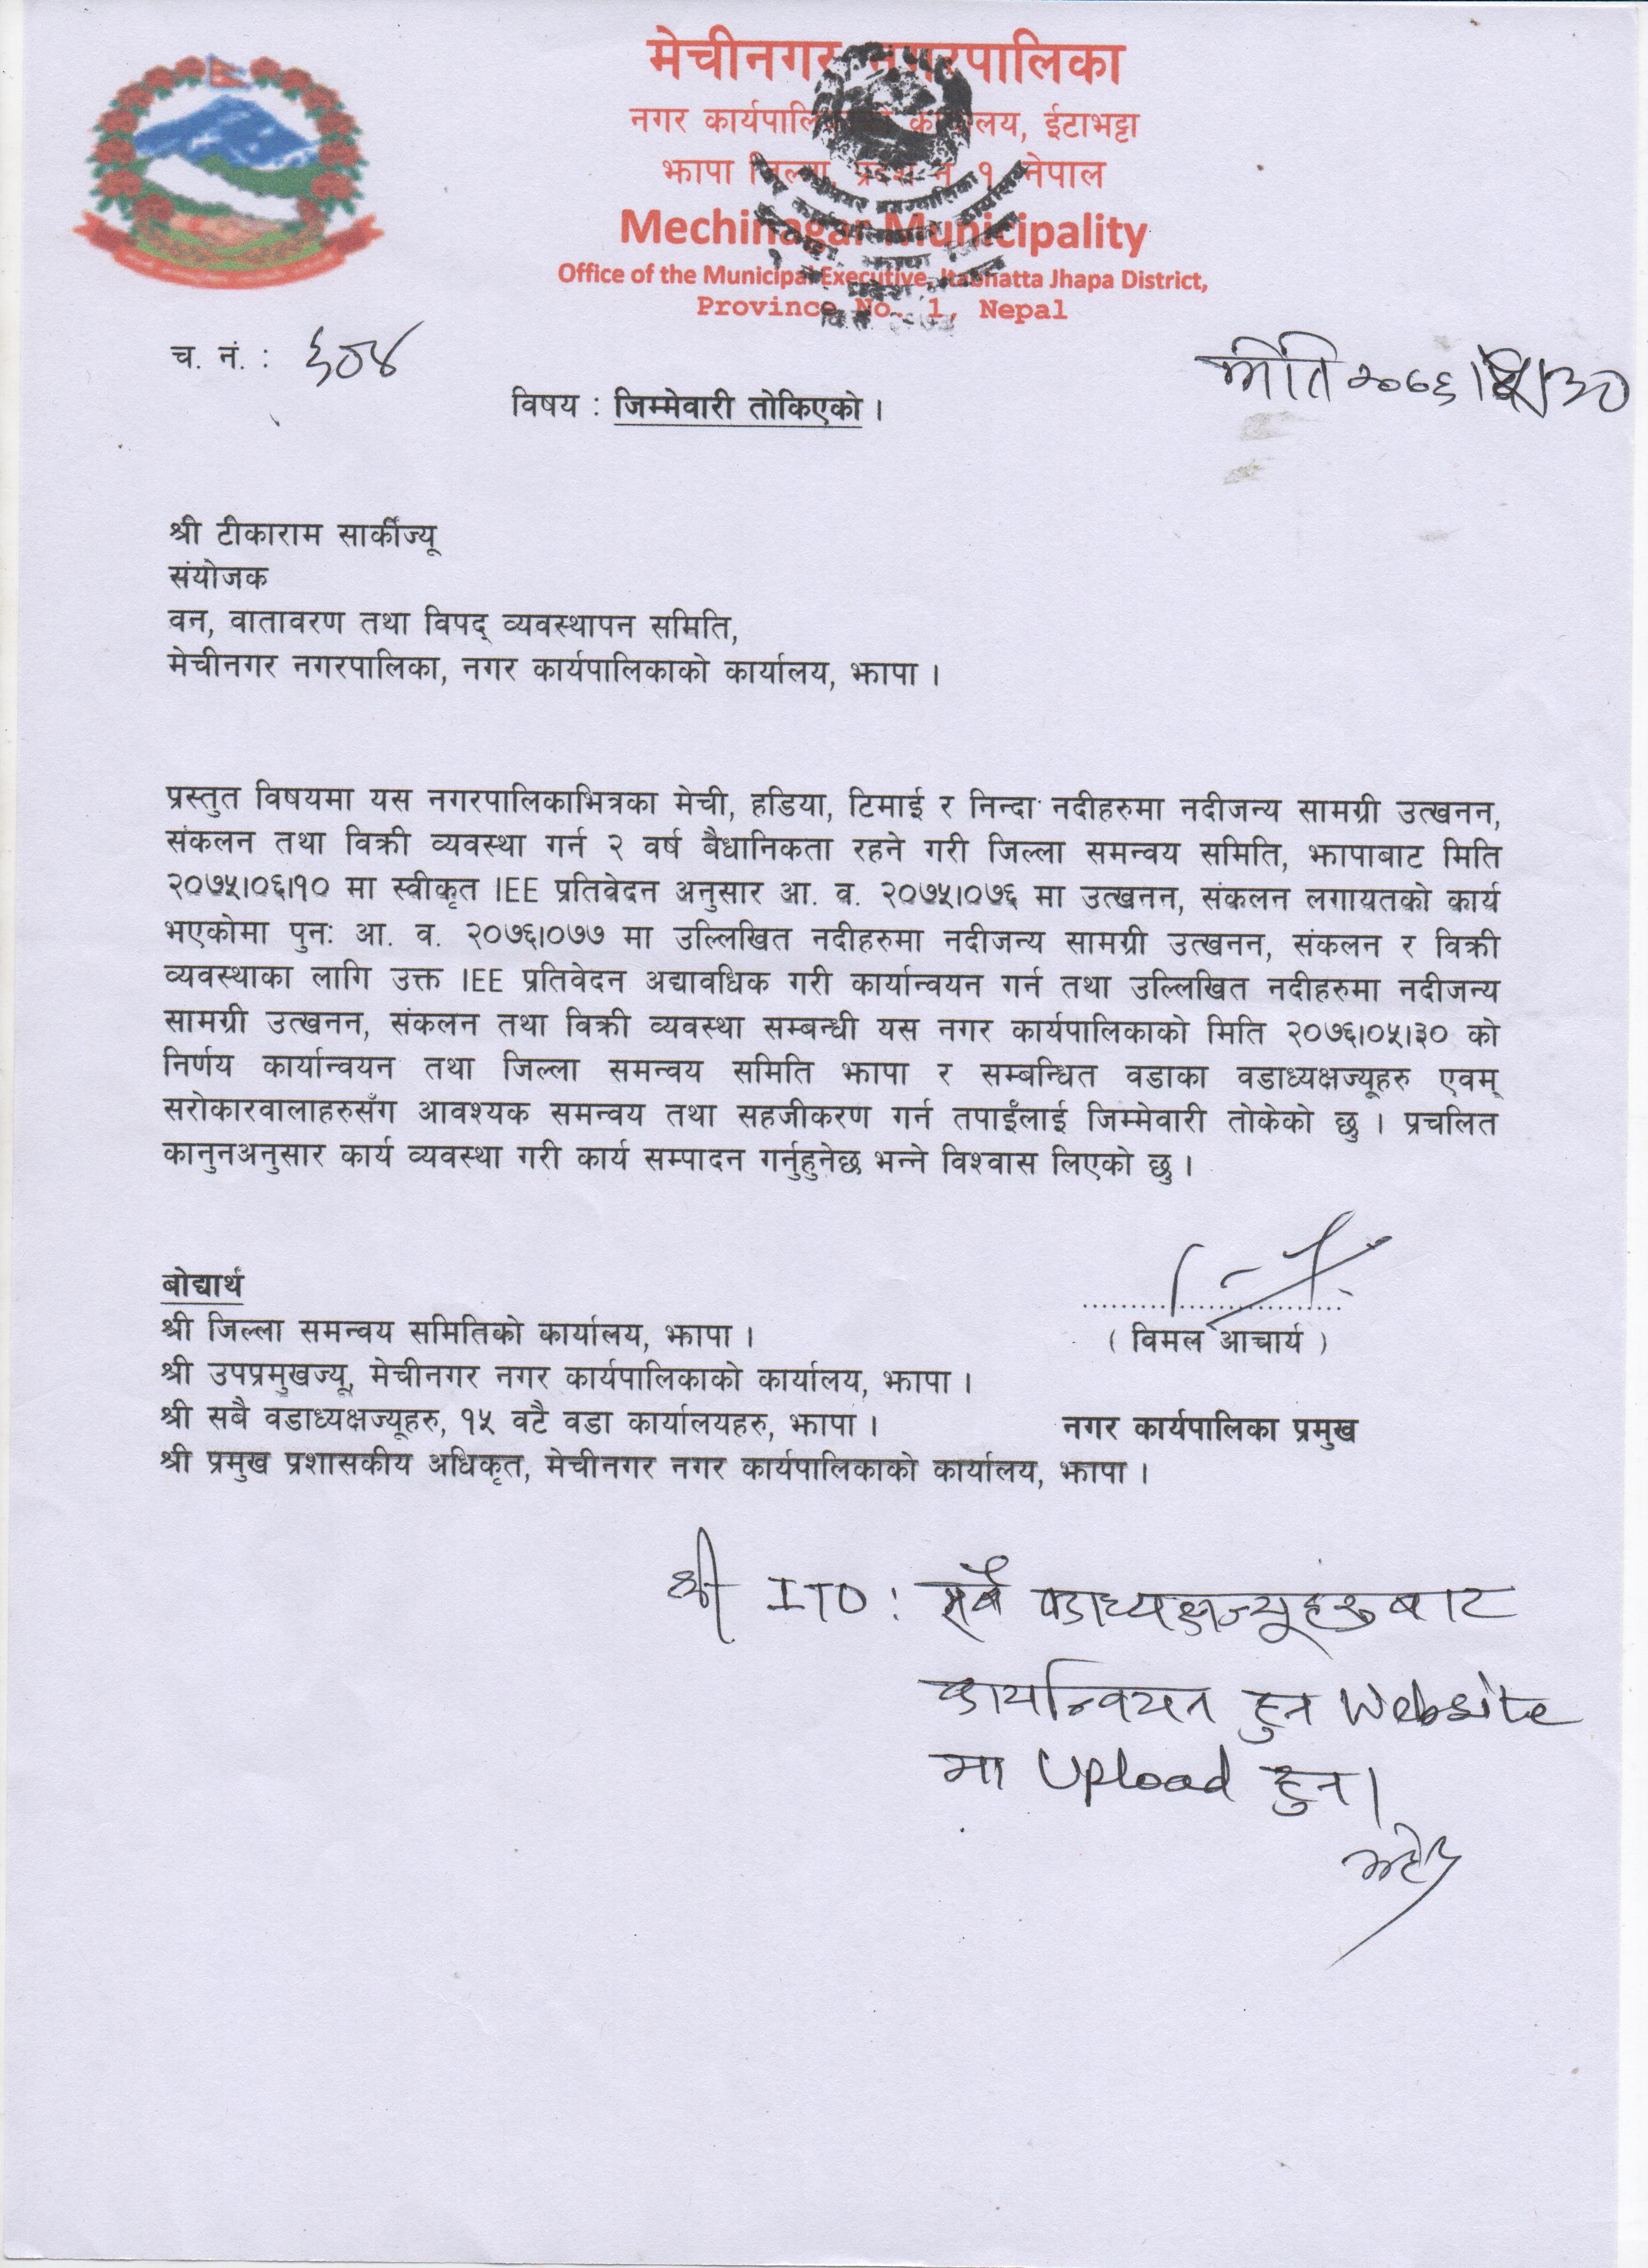 मेचीनगर नगरपालिका
नगर कार्यपालिकाको कार्यालय, ईटाभट्टा
झापा जिल्ला, प्रदेश नं. १, नेपाल
Mechinagar Municipality
Office of the Municipal Executive, Itabhatta Jhapa District,
Province No. 1, Nepal
च. नं. : ६०४
मिति २०७६।५।३०
विषय : जिम्मेवारी तोकिएको ।
श्री टीकाराम सार्कीज्यू
संयोजक
वन, वातावरण तथा विपद् व्यवस्थापन समिति,
मेचीनगर नगरपालिका, नगर कार्यपालिकाको कार्यालय, झापा ।
प्रस्तुत विषयमा यस नगरपालिकाभित्रका मेची, हडिया, टिमाई र निन्दा नदीहरुमा नदीजन्य सामग्री उत्खनन,
संकलन तथा विक्री व्यवस्था गर्न २ वर्ष बैधानिकता रहने गरी जिल्ला समन्वय समिति, झापाबाट मिति
२०७५।०६।१० मा स्वीकृत IEE प्रतिवेदन अनुसार आ. व. २०७५।०७६ मा उत्खनन, संकलन लगायतको कार्य
भएकोमा पुनः आ. व. २०७६।०७७ मा उल्लिखित नदीहरुमा नदीजन्य सामग्री उत्खनन, संकलन र विक्री
व्यवस्थाका लागि उक्त IEE प्रतिवेदन अद्यावधिक गरी कार्यान्वयन गर्न तथा उल्लिखित नदीहरुमा नदीजन्य
सामग्री उत्खनन, संकलन तथा विक्री व्यवस्था सम्बन्धी यस नगर कार्यपालिकाको मिति २०७६।०५।३० को
निर्णय कार्यान्वयन तथा जिल्ला समन्वय समिति झापा र सम्बन्धित वडाका वडाध्यक्षज्यूहरु एवम्
सरोकारवालाहरुसँग आवश्यक समन्वय तथा सहजीकरण गर्न तपाईँलाई जिम्मेवारी तोकेको छु । प्रचलित
कानुनअनुसार कार्य व्यवस्था गरी कार्य सम्पादन गर्नुहुनेछ भन्ने विश्वास लिएको छु ।
बोद्यार्थ
श्री जिल्ला समन्वय समितिको कार्यालय, झापा ।
( विमल आचार्य )
श्री उपप्रमुखज्यू, मेचीनगर नगर कार्यपालिकाको कार्यालय, झापा ।
श्री सबै वडाध्यक्षज्यूहरु, १५ वटै वडा कार्यालयहरु, झापा ।
नगर कार्यपालिका प्रमुख
श्री प्रमुख प्रशासकीय अधिकृत, मेचीनगर नगर कार्यपालिकाको कार्यालय, झापा ।
श्री ITO : सबै वडाध्यक्षज्यूहरुबाट
कार्यान्वयन हुन Website
मा Upload हुन।